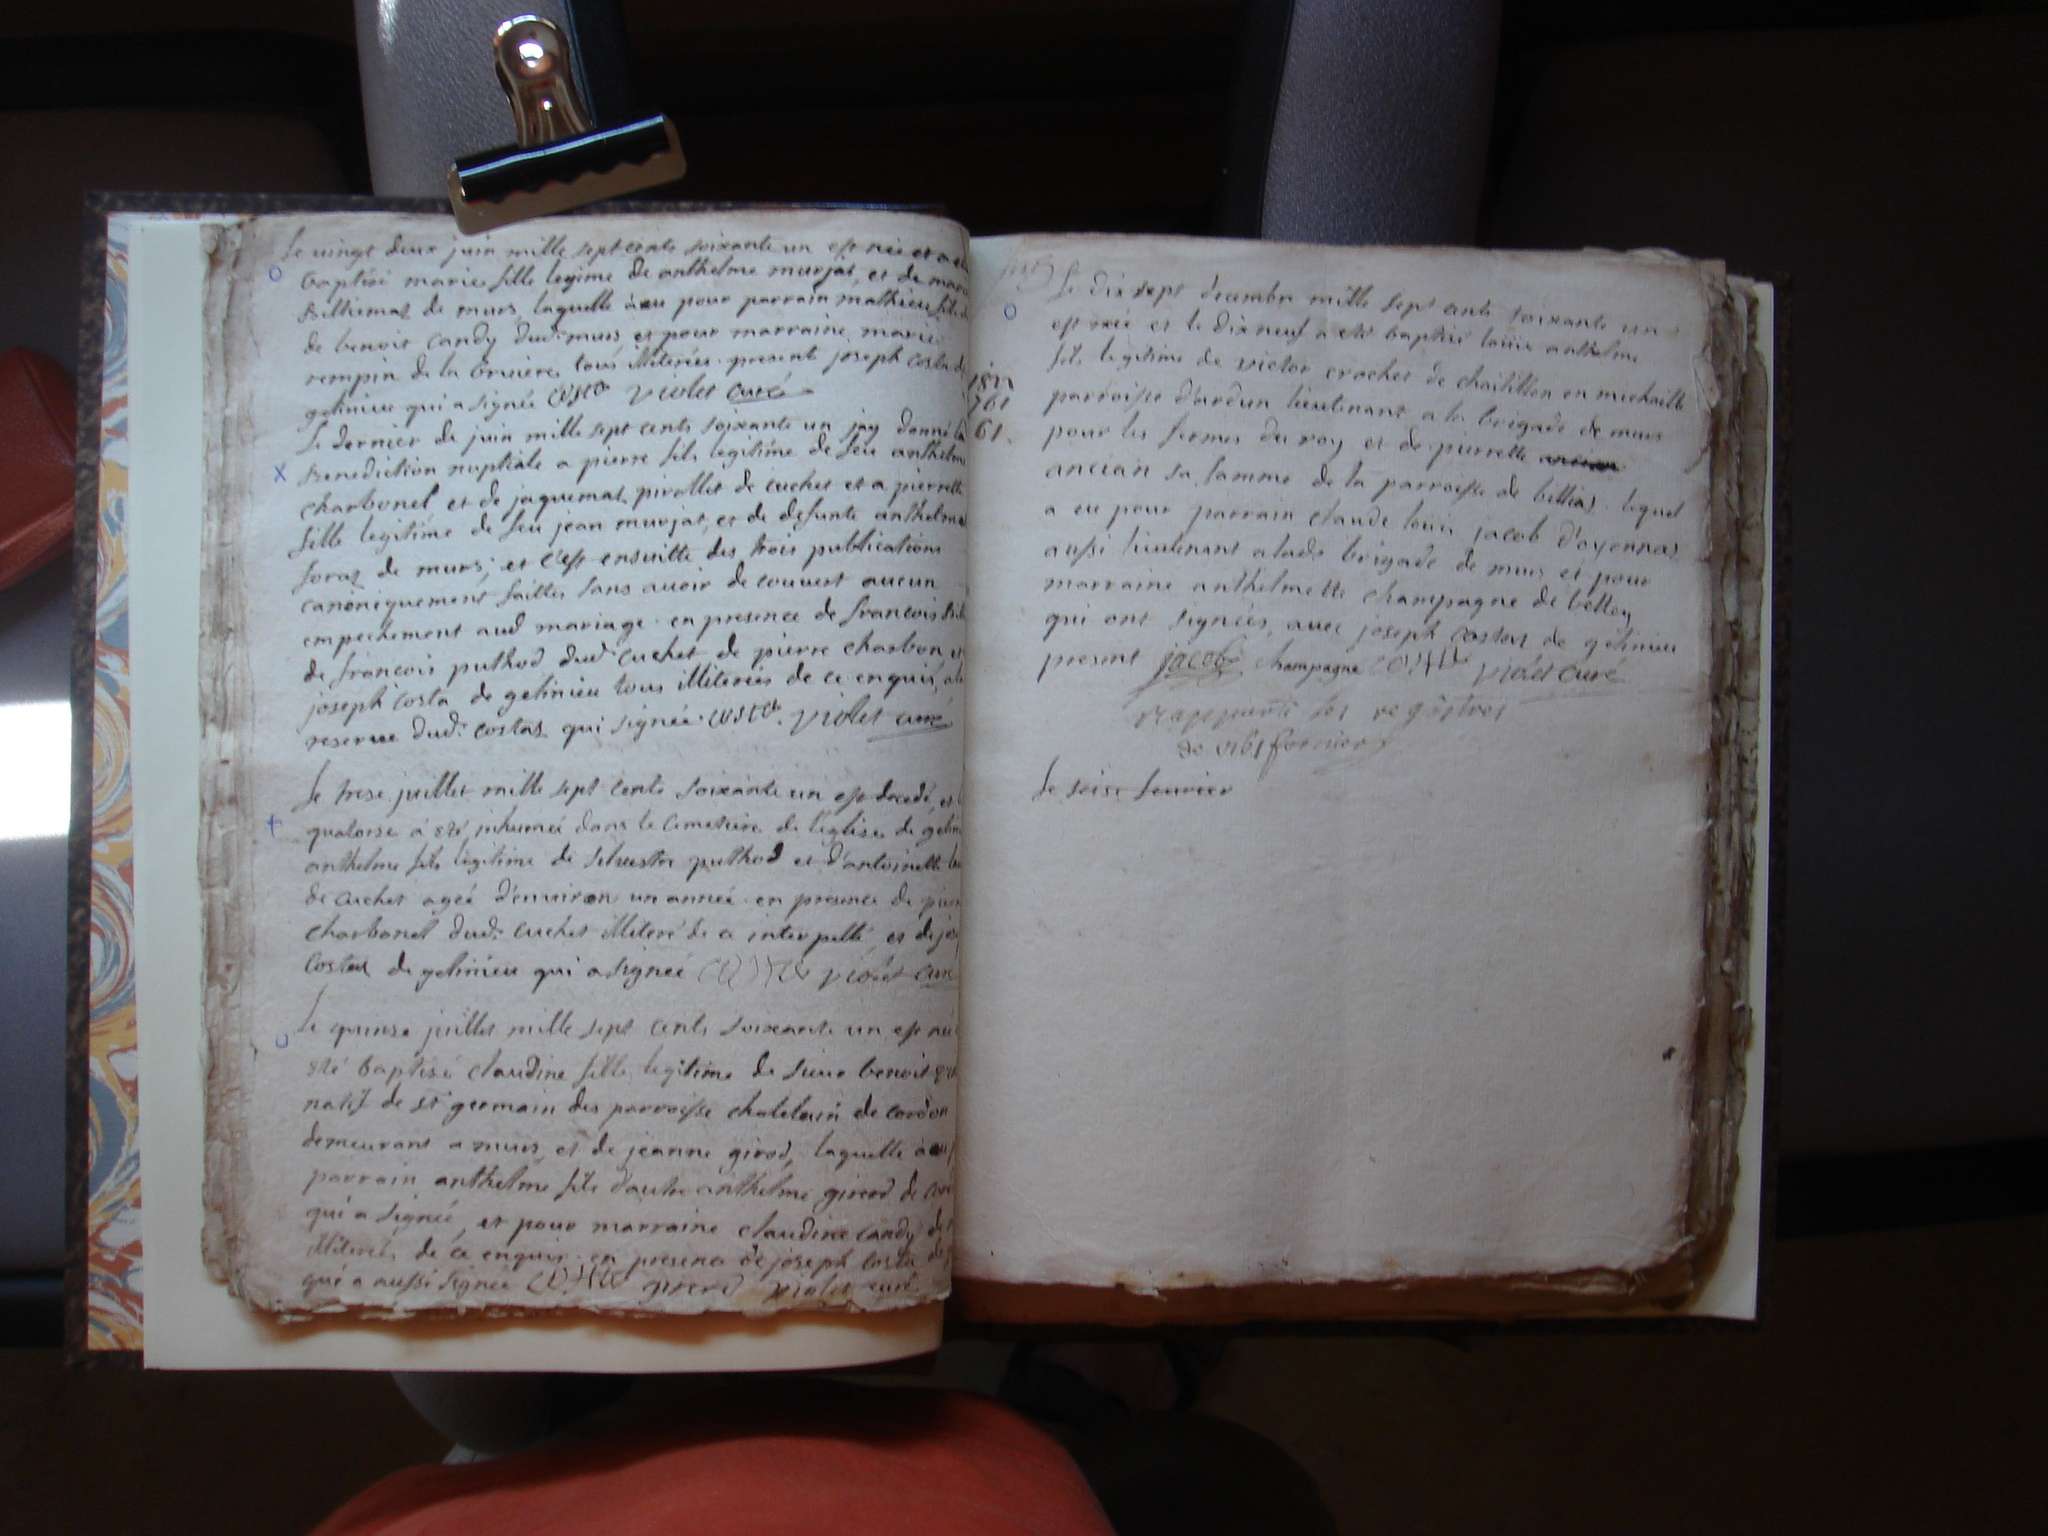 Le vingt deux juin mille sept cents soixante un est née et a
baptisé marie fille legime de anthelme murjat, et de
de murs, laquelle à eu pour parrain mathieu fils
de benoit candy dud: murs, et pour marraine marie
rempin de la bruiere tous illiterés present joseph costa de
gelinieu qui a signée costa violet curé
Le dernier de juin mille sept cents soixante un jay donné la
Benediction nuptiale a pierre fils legitime de feu anthelme
charbonel et de jaquemat pirollet de cuchet et a pierrette
fille legitime de feu jean murjat, et de defunte anthelme
forat de murs; et c'est ensuitte des trois publications
canoniquement faittes sans avoir decouvert aucun
empechement aud mariage en presence de francois fils
de francois puthod dud: cuchet de pierre charbon et
joseph costa de gelinieu tous illiterés de ce enquis, a la
reserve dud: costaz qui signée costa. violet curé
Le trese juillet mille sept cents soixante un est decedé, et
quatorse à été inhumeé dans le cemetiere de l'eglise de
anthelme fils legitime de silvestre puthod et d'antoinette
de cuchet ageé d'environ un anneé en presence de
charbonel dud: cuchet illiteré de ce interpellé, et de
costaz de gelinieu qui a signeé costa violet curé
Le quinse juillet mille sept cents soixante un est née
été baptisé claudine fille legitime de sieur benoit
natif de st germain des parroisse chatelain de cordon
demeurant a murs, et de jeanne girod, laquelle à eu
parrain anthelme fils d'autre anthelme girerd de
qui a signeé, et pour marraine claudine candy de
illiterés de ce enquis en presence de joseph costa de
qui a aussi signeé costa girerd violet curé
Le dix sept decembre mille sept cents soixante un
est née et le dixneuf a eté baptisé loüis anthelme
fils legitime de victor crochet de chatillon en michaille
parroisse d'ardun lieutenant a la brigade de murs
pour les fermes du roy et de pierrette
ancian sa famme de la parroisse de billias. lequel
a eu pour parrain claude loüis jacob d'oyonnas
aussi lieutenant a lade brigade de murs et pour
marraine anthelmette champagne de belley
qui ont signées, avec joseph costaz de gelinieu
present jacob champagne costa violet curé
761
61.
les registres
de 1761
Le seise feuvrier